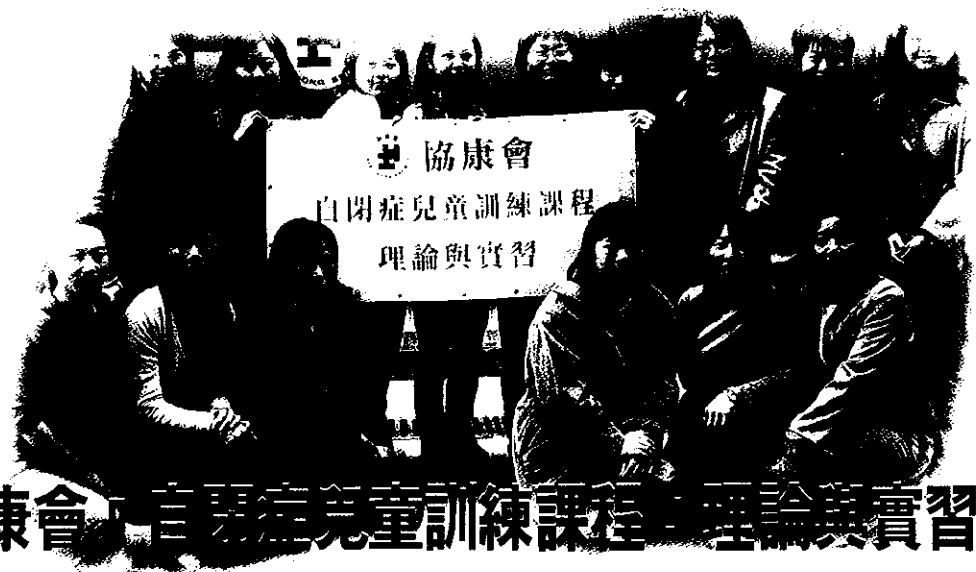 協康會
自閉症兒童訓練課程
理論與實習
康會 自閉症兒童訓練課程 理論與實習